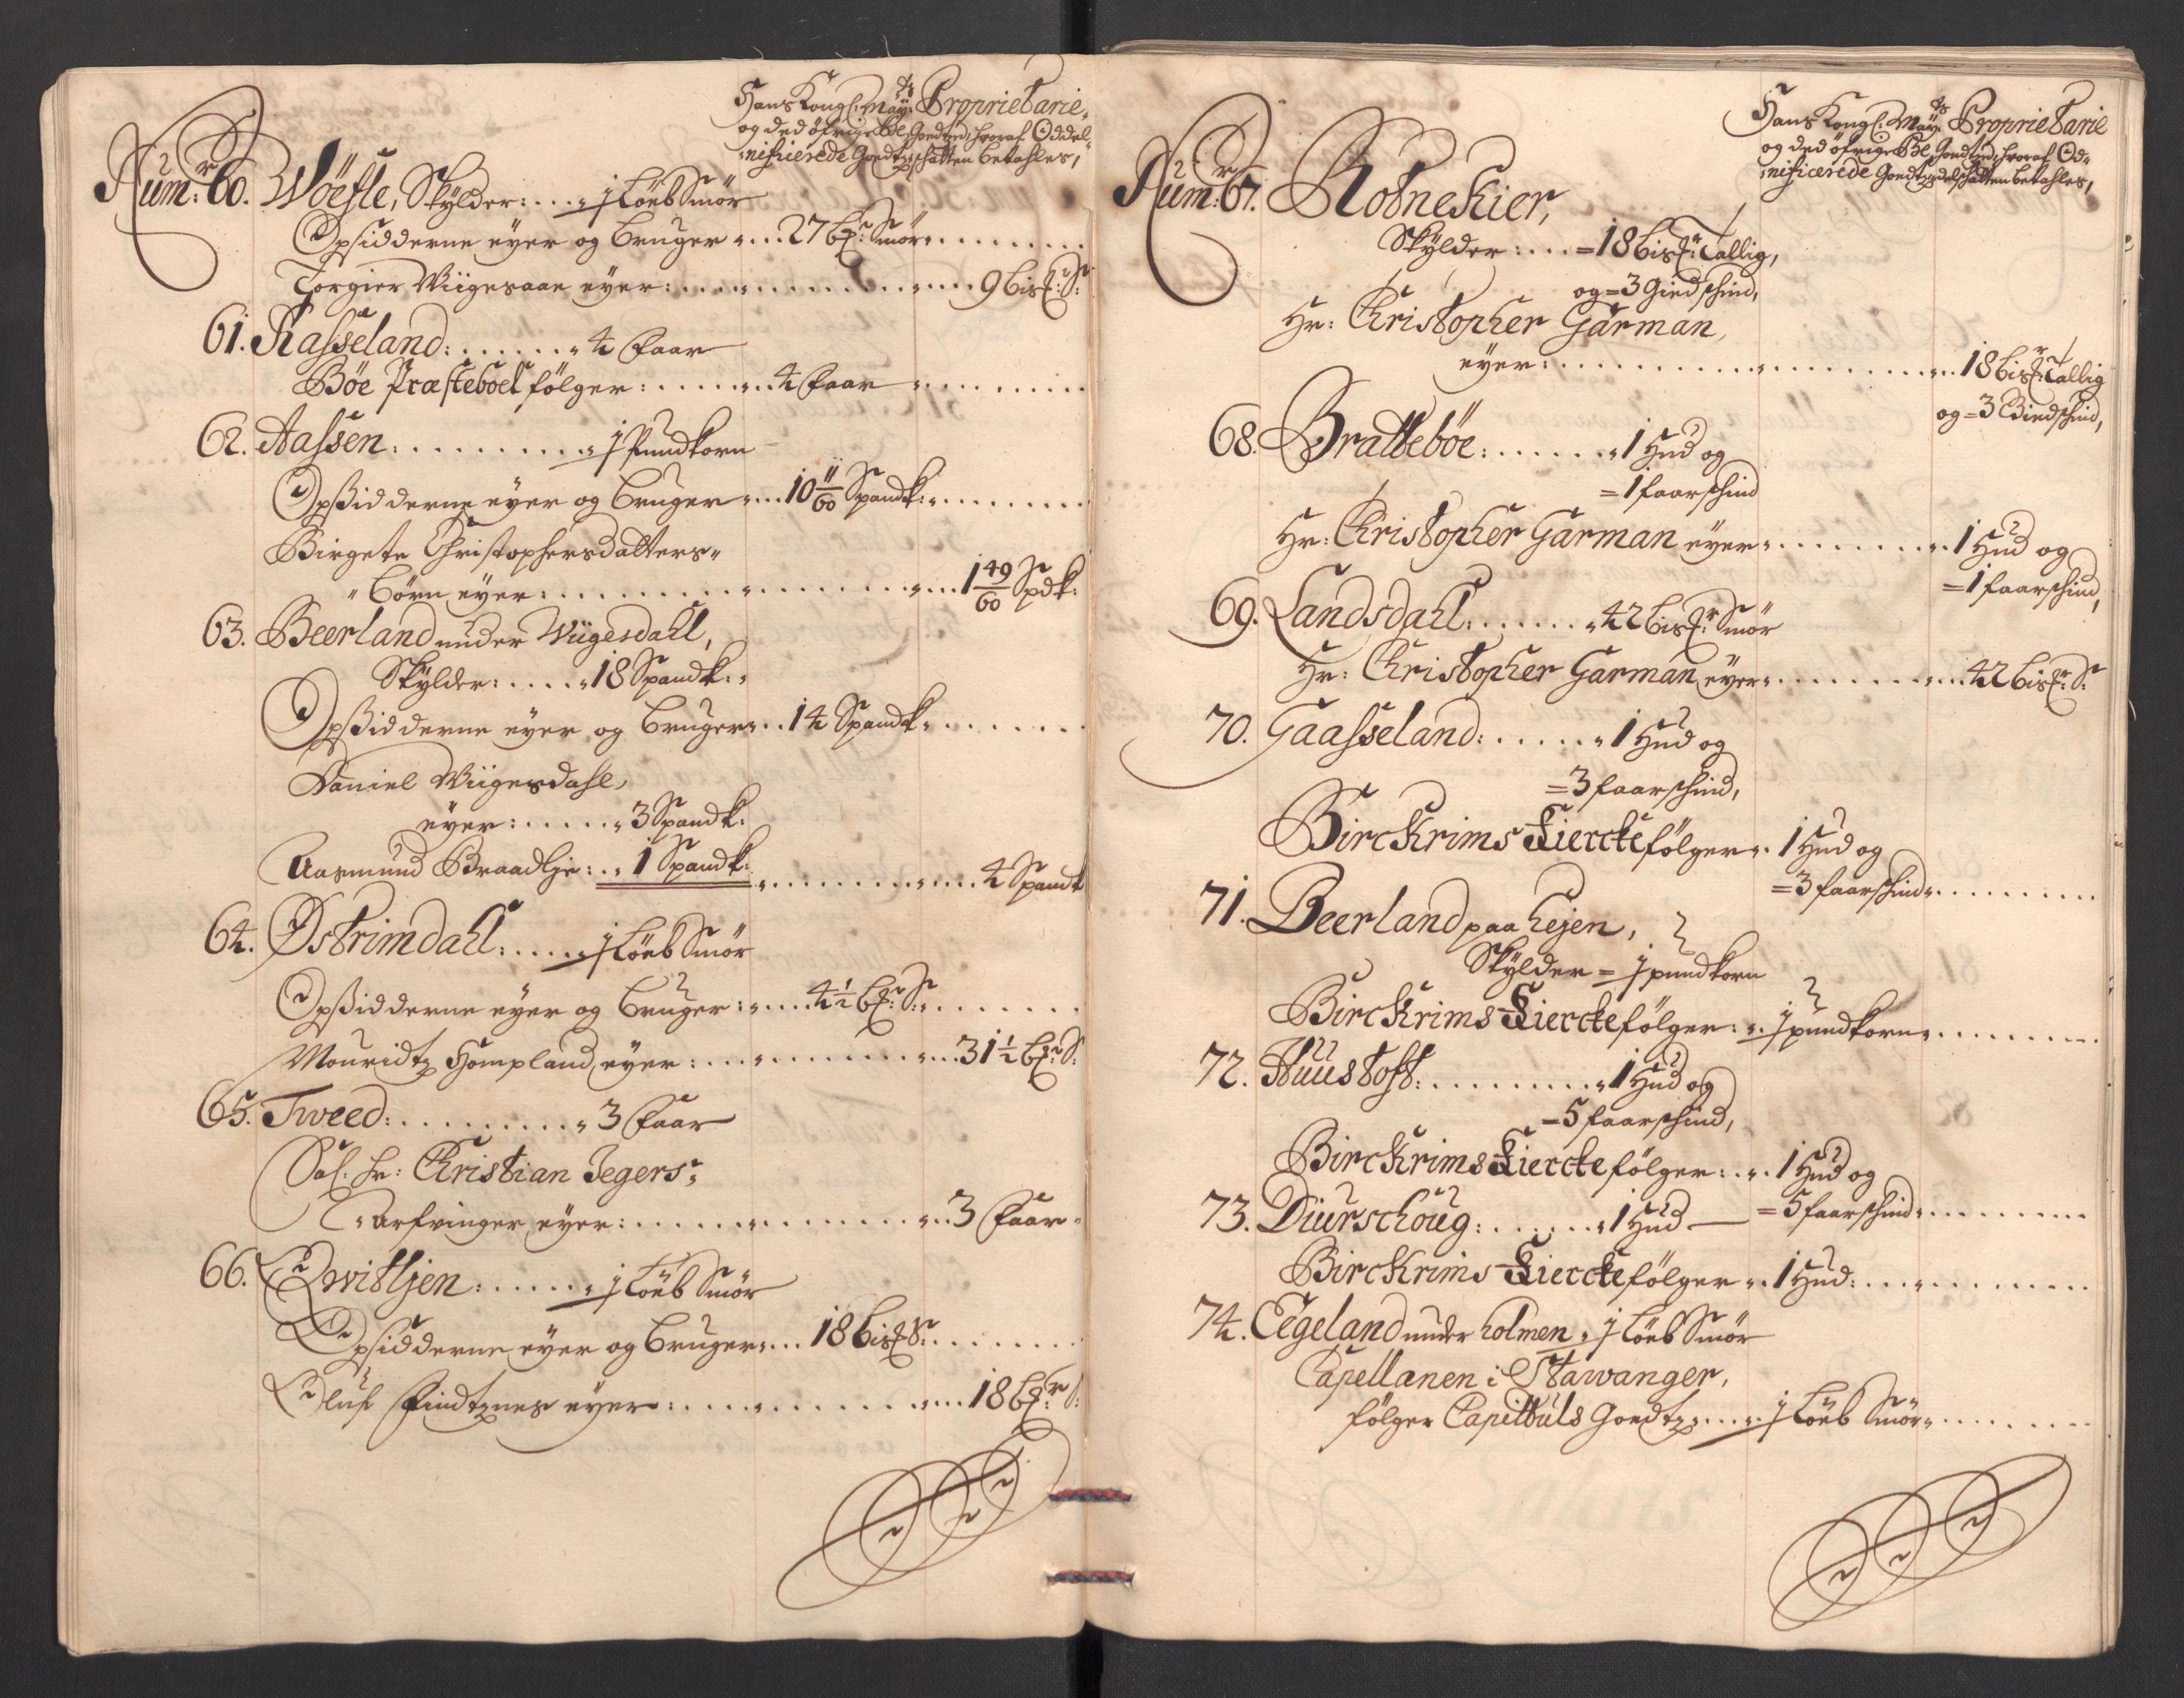 Hans Kongl: Maÿ.ts Proprietarie-
og ded öfrige Be- Goedtz, hvoraf Oddel-
nificerede Goedtz schatten betahles,
Num:r 60. Wöefle, Skÿlder: . . . 1 Löeb Smör
Opsidderne eÿer og bruger . . . 27 bs:r Smör . . . . . . . . .
Torgier Wiigesaae eÿer: . . . . . . . . . . . . . 9 Bis:r S:
61. Rasseland: . . . . . . 4 Faar
Böe Præsteboel fölger: . . . . . 4 Faar . . . . . . . .
62. Aassen: . . . . . . . . . 1 Pundkorn
Opsidderne eÿer og bruger . . . 10 11/60 Spandk: . . . . . . . . .
Birgete Christophersdatters
börn eÿer: . . . . . . . . . . . . . . . . . 1 49/60 Spdk:
63. Beerland under Wiigesdahl,
Skÿlder: . . . . 18 Spandk:
Opsidderne eÿer og bruger . . . 14 Spandk . . . . . . .
Daniel Wiigesdahl,
eÿer: . . . . . 3 Spandk:
Aasmund Braadlje: . . 1 Spandk: . . . . . . . . . . . . 4 Spandk
64. Östrimdahl: . . . . . 1 Löeb Smör
Opsidderne eÿer og bruger: . . . . 4 1/2 bs:r S: . . . . . . .
Mouridtz Hompland, eÿer: . . . . . . . . . . . . 31 1/2 bs:r S:
65. Tweed: . . . . . . . . . 3 Faar
Sal. hr: Christian Jegers:
Arfvinger eÿer: . . . . . . . . . . . . . . . 3 Faar
66. Qvitljen: . . . . . . 1 Löeb Smör
Opsidderne eÿer og bruger . . . 18 bis:r S: . . . . . . .
Oluf Findtznes eÿer: . . . . . . . . . . . . . . 18 bs:r S:
Hans Kongl: Maÿ.ts Proprietarie
og ded öfrige Be- Goedtz, hvoraf Od-
nificerede Goedtz delschatten betahles,
Num:r 67. Kotnekier,
Skÿlder: . . . = 18 bis:r Tallig,
og = 3 Giedschind,
Hr: Christopher Garman,
eÿer: . . . . . . . . . . . . . . . . . . . . . . 18 bis:r Tallig
og = 3 Giedschind,
68. Bratteböe: . . . . . . 1 Hud og
= 1 faarschind
Hr: Christopher Garman eÿer . . . . . . . . . . . 1 Hud og
= 1 faarschind,
69. Landsdahl: . . . . . . 42 bis:r Smör
Hr: Christopher Garman, eÿer . . . . . . . . . . . 42 bis:r S:
70. Gaasseland: . . . . . . 1 Hud og
= 3 faarschind,
Birckrims Kiercke fölger . . 1 Hud og
= 3 faarschind . . . . . . . . . .
71. Beerland paa hejen,
Skÿlder = 1 pundkorn
Birckrims Kiercke fölger: . . 1 pundkorn . . . . . . . . .
72. Huustoft: . . . . . . . . . 1 Hud og
= 5 faarschind,
Birckrims Kiercke fölger: . . . 1 Hud og
= 5 faarschind . . . . . . . . . .
73. Diurschoug: . . . . . . 1 Hud
Birckrims Kiercke fölger . . 1 Hud: . . . . . . . . . . .
74. Eegeland under holmen, 1 Löeb Smör
Capellanen i Stawanger,
fölger Capittuls Goedtz . . . . . 1 Löeb Smör . . . . . . . .